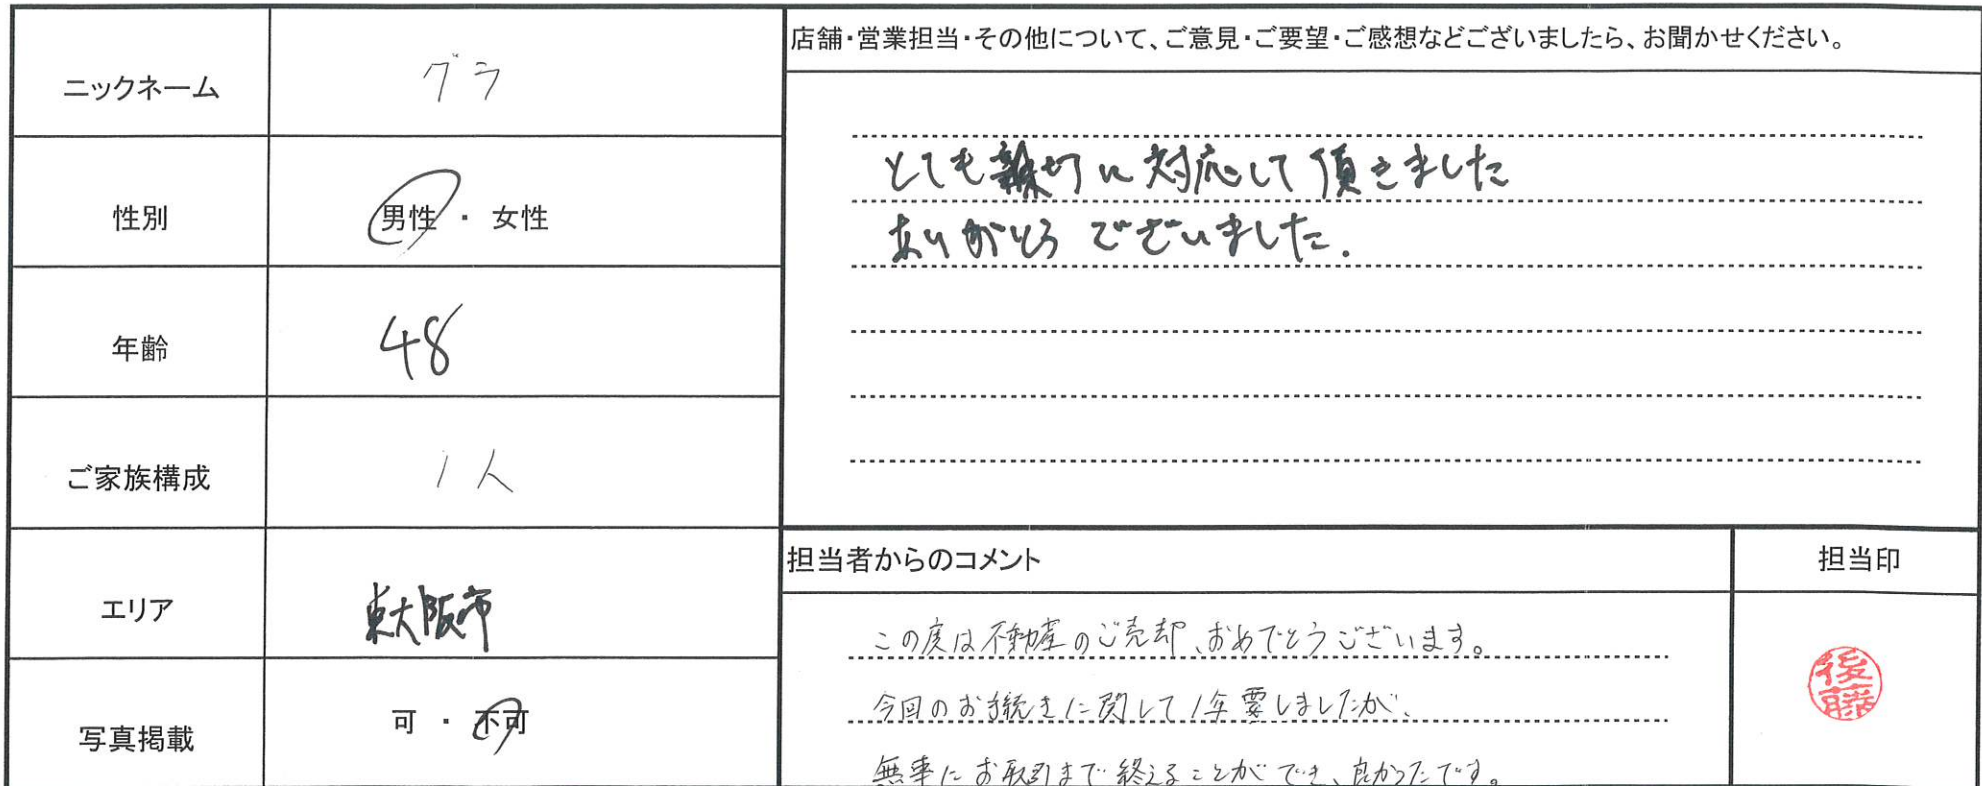 ニックネーム
グラ
性別
男性 ・ 女性
年齢
48
ご家族構成
1人
エリア
東大阪市
写真掲載
可 ・ 不可
店舗・営業担当・その他について、ご意見・ご要望・ご感想などございましたら、お聞かせください。
とても親切に対応して頂きました
ありがとうございました.
担当者からのコメント
この度は不動産のご売却、おめでとうございます。
今回のお手続きに関して1年要しましたが、
無事にお取引まで終えることができ、良かったです。
担当印
後藤